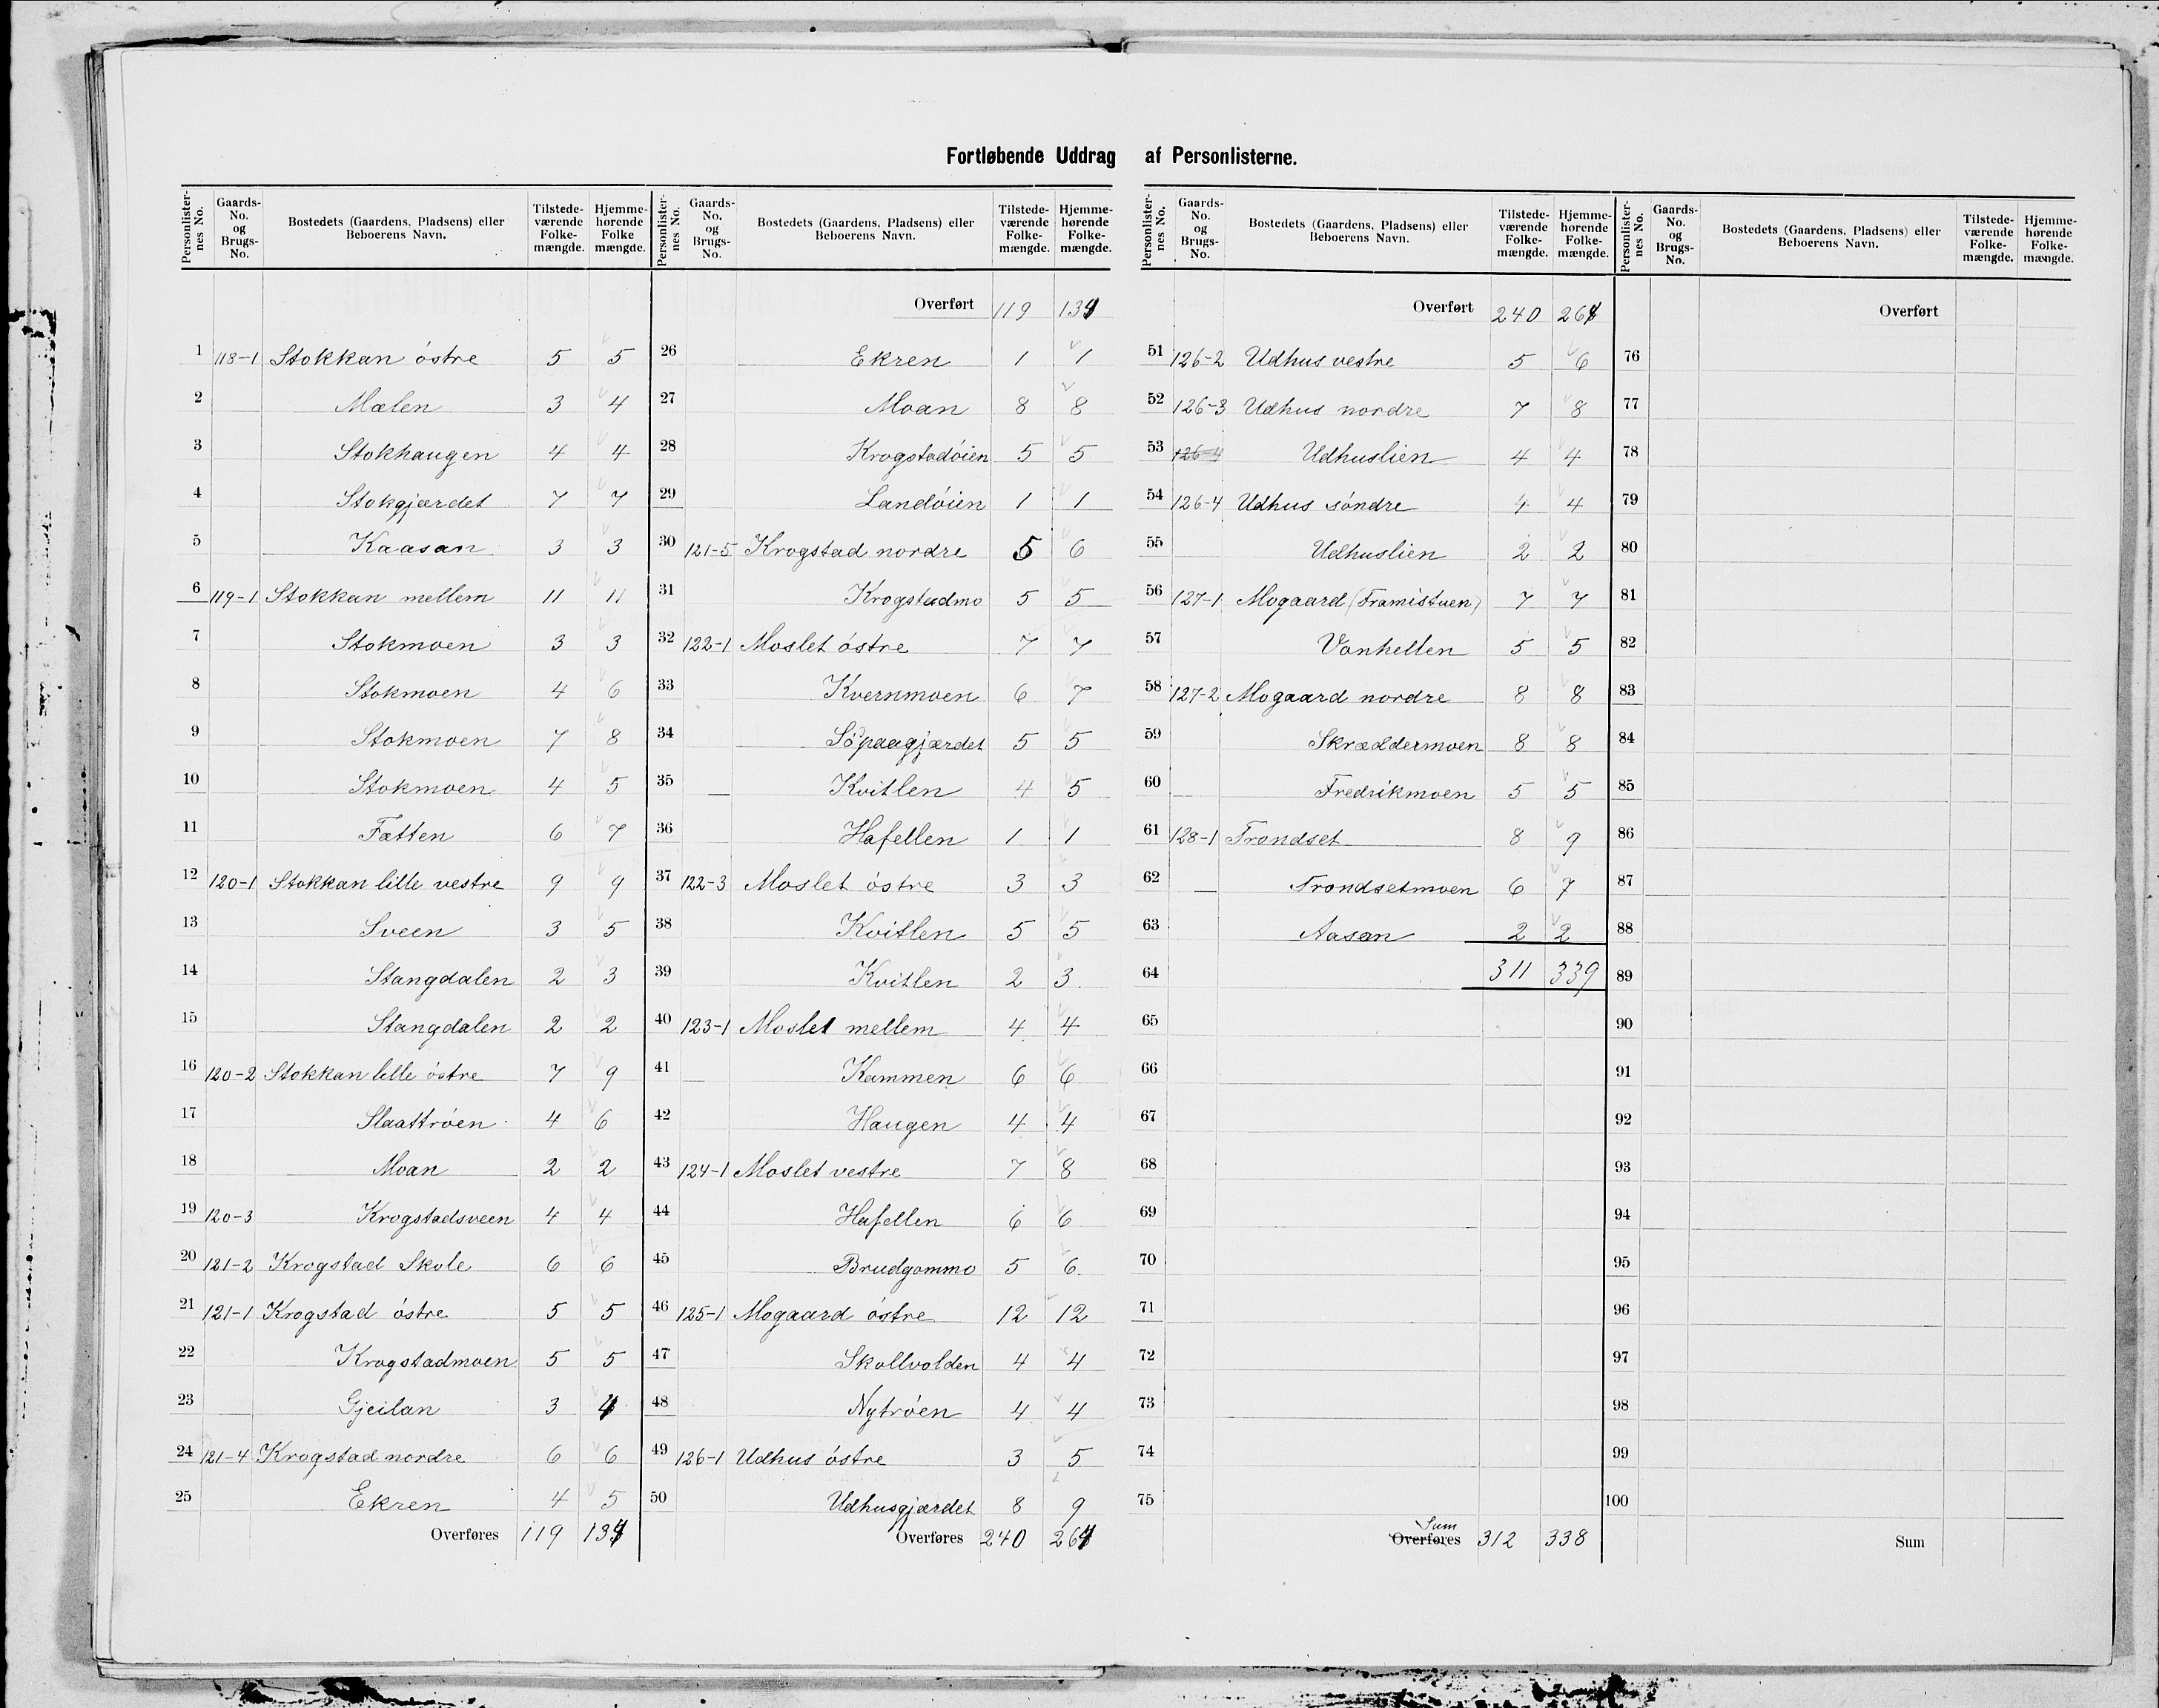 Fortløbende Uddrag af Personlisterne.
Personlister-nes No. Gaards-No. og Brugs-No. Bostedets (Gaardens, Pladsens) eller Beboerens Navn. Tilstede-værende Folke-mængde. Hjemme-hørende Folke mængde.
1 118-1 Stokkan östre 5 5
2 Mælen 3 4
3 Stokhaugen 4 4
4 Stokgjærdet 7 7
5 Kaasan 3 3
6 119-1 Stokkan mellem 11 11
7 Stokmoen 3 3
8 Stokmoen 4 6
9 Stokmoen 7 8
10 Stokmoen 4 5
11 Fætten 6 7
12 120-1 Stokkan lille vestre 9 9
13 Sveen 3 5
14 Stangdalen 2 3
15 Stangdalen 2 2
16 120-2 Stokkan lille östre 7 9
17 Slaattröen 4 6
18 Moan 2 2
19 120-3 Krogstadsveen 4 4
20 121-2 Krogstad Skole 6 6
21 121-1 Krogstad östre 5 5
22 Krogstadmoen 5 5
23 Gjeilan 3 4
24 121-4 Krogstad nordre 6 6
25 Ekren 4 5
Overføres 119
Personlister-nes No. Gaards-No. og Brugs-No. Bostedets (Gaardens, Pladsens) eller Beboerens Navn. Tilstede-værende Folke-mængde. Hjemme-hørende Folke-mængde.
Overført 119
26 Ekren 1 1
27 Moan 8 8
28 Krogstadöien 5 5
29 Landöien 1 1
30 121-5 Krogstad nordre 5 6
31 Krogstadmo 5 5
32 122-1 Moslet östre 7 7
33 Kvernmoen 6 7
34 Söpaagjærdet 5 5
35 Kvitlen 4 5
36 Hafellen 1 1
37 122-3 Moslet östre 3 3
38 Kvitlen 5 5
39 Kvitlen 2 3
40 123-1 Moslet mellem 4 4
41 Kammen 6 6
42 Haugen 4 4
43 124-1 Moslet vestre 7 8
44 Hafellen 6 6
45 Brudgommo 5 6
46 125-1 Mogaard östre 12 12
47 Skollvolden 4 4
48 Nytröen 4 4
49 126-1 Udhus östre 3 5
50 Udhusgjærdet 8 9
Overføres 240
Personlister-nes No. Gaards-No. og Brugs-No. Bostedets (Gaardens, Pladsens) eller Beboerens Navn. Tilstede-værende Folke-mængde. Hjemme-hørende Folke-mængde.
Overført 240
51 126-2 Udhus vestre 5 6
52 126-3 Udhus nordre 7 8
53 126-4 Udhuslien 4 4
54 126-4 Udhus söndre 4 4
55 Udhuslien 2 2
56 127-1 Mogaard (Framistuen) 7 7
57 Vonhellen 5 5
58 127-2 Mogaard nordre 8 8
59 Skræddermoen 8 8
60 Fredrikmoen 5 5
61 128-1 Trondset 8 9
62 Trondsetmoen 6 7
63 Aasan 2 2
64 311 339
65
66
67
68
69
70
71
72
73
74
75
Sum
Overføres 312 338
Personlister-nes No. Gaards-No. og Brugs-No. Bostedets (Gaardens, Pladsens) eller Beboerens Navn. Tilstede-værende Folke-mængde. Hjemme-hørende Folke-mængde.
Overført
76
77
78
79
80
81
82
83
84
85
86
87
88
89
90
91
92
93
94
95
96
97
98
99
100
Sum